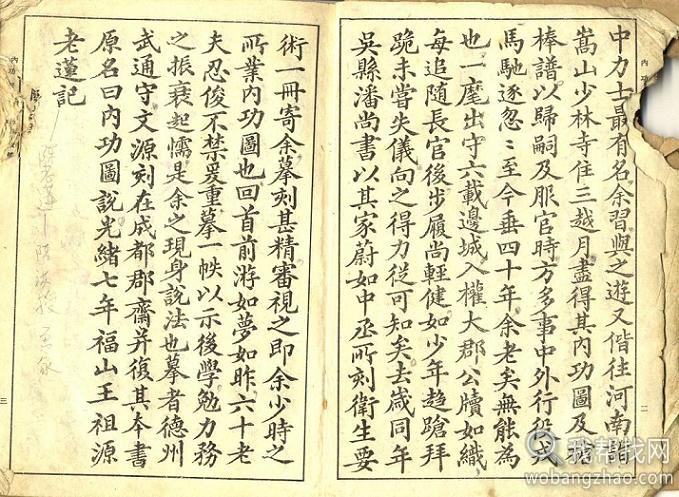 中力士最有名余習與之遊又偕往河南詣
嵩山少林寺住三越月盡得其內功圖及
棒譜以歸嗣及服官時方多事中外行役
馬馳逐忽〻至今垂四十年余老矣無能為
也一麾出守六載邊城入權大郡公牘如織
每追随長官後步履尚輕健如少年趋蹌拜
跪未嘗失儀向之得力従可知矣去歲同年
吳縣潘尚書以其家蔚如中丞所刻衛生要
二
術一冊寄余摹刻甚精審視之即余少時之
所業內功圖也回首前游如夢如昨六十老
夫忍俊不禁爰重摹一帙以示後學勉力務
之振衰起懦是余之現身說法也摹者德州
武通守文源刻在成都郡齋并復其本書
原名曰內功圖說光緒七年福山王祖源
老蓮記
內功
三
我帮找网
wobangzhao.com